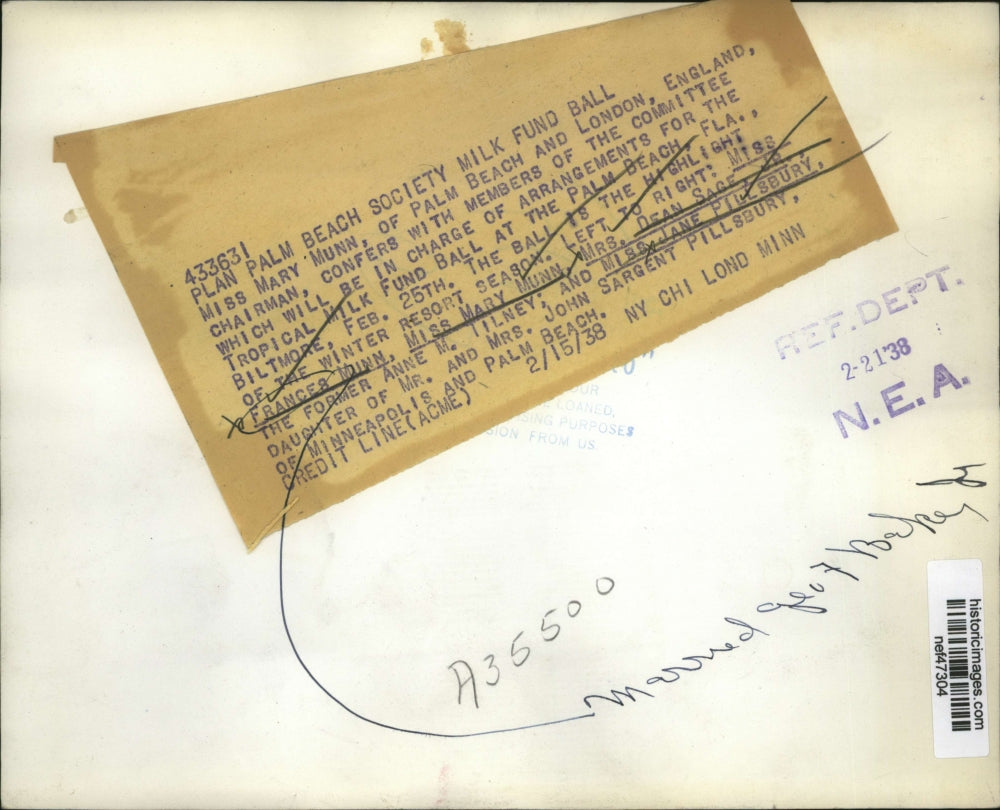 433631
PLAN PALM BEACH SOCIETY MILK FUND BALL
MISS MARY MUNN, OF PALM BEACH AND LONDON, ENGLAND,
CHAIRMAN, CONFERS WITH MEMBERS OF THE COMMITTEE
WHICH WILL BE IN CHARGE OF ARRANGEMENTS FOR THE
TROPICAL MILK FUND BALL AT THE PALM BEACH, FLA.,
BILTMORE, FEB. 25TH. THE BALL IS THE HIGHLIGHT
OF THE WINTER RESORT SEASON. LEFT TO RIGHT: MISS
FRANCES MUNN, MISS MARY MUNN, MRS. DEAN SAGE, IS
THE FORMER ANNE M. TILNEY; AND MISS JANE PILLSBURY,
DAUGHTER OF MR. AND MRS. JOHN SARGENT PILLSBURY,
OF MINNEAPOLIS AND PALM BEACH.
CREDIT LINE (ACME) 2/15/38 NY CHI LOND MINN
OUR
LOANED,
PURPOSES
FROM US
REF. DEPT.
2-21'38
N.E.A.
married Baker
A35500
historicimages.com
nef47304